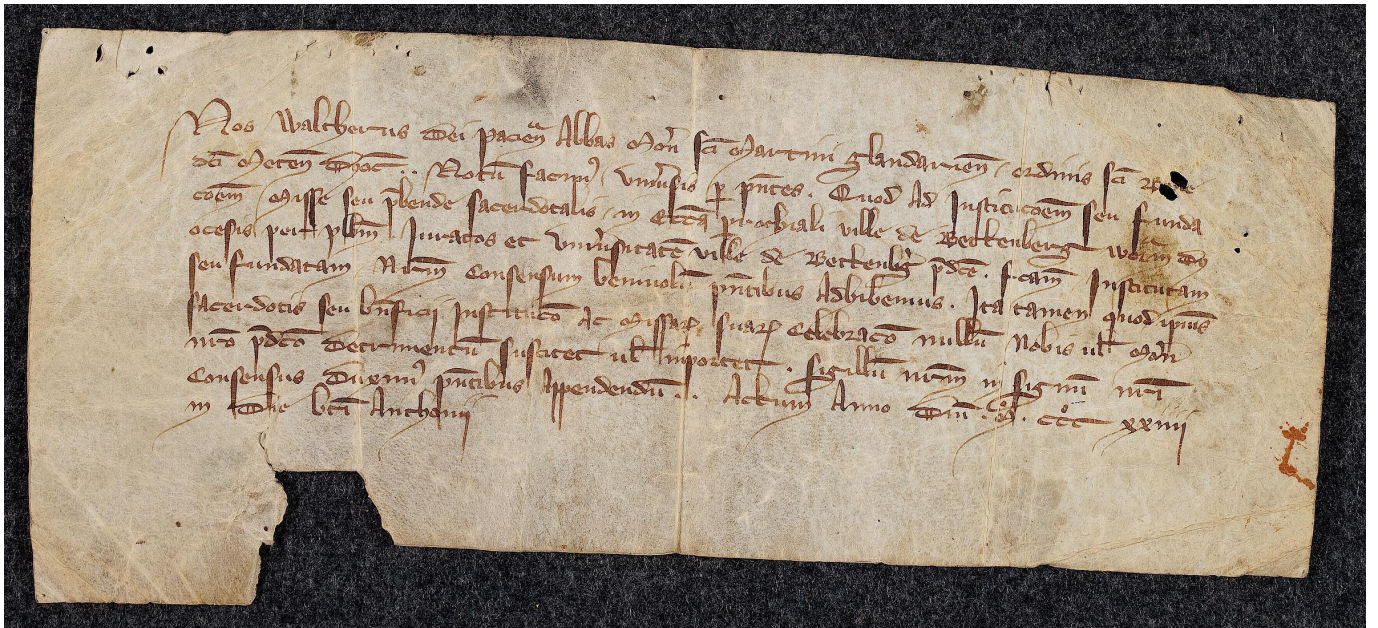 Nos Waltherus dei pacien̄ᵃ Abbas mon̄ sc̄i Martini glandarien̄ . ordinis sc̄i
dc̄i Meten̄ dyoc̄ .. Notū facim⁹ . vniu͛sis ꝑ pn̄tes . Quod Ad Institutōem seu funda
tōem . Misse seu p̄bende sacerdotalis . in Ecc̄a ꝑrochiali ville de Beckenberg worm̄ dy
ocesis per pl̄bm̄ . Iuratos et vniu͛sitatē ville de Beckenb͛g p̄dc̄e . fc̄am Institutam
seu fundatam . Nr̄m Consensum beniuolū pn̄tibus Adhibemus . Ita tamen quod ipsius
sacerdotis seu bn̄ficij Institutōe Ac Missaꝝ suaꝝ Celebratōe nullū Nobis ul̄ mon̄
nr̄o p̄dc̄o detrimentū suscitet ul̄ importet . Sigillū nr̄m in signū nr̄i
Consensus duxim⁹ pn̄tibus Appendendū .. Actum Anno dn̄i . m̊ . ccc̊ xxiiii
in die bt̄i Anthonij